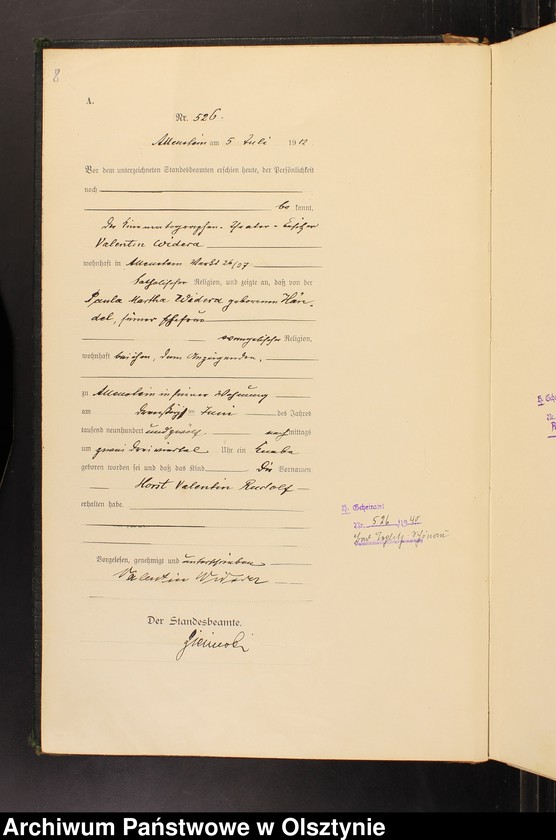 8
A.
Nr. 526.
Allenstein am 5 Juli 1912
Vor dem unterzeichneten Standesbeamten erschien heute, der Persönlichkeit
nach
be kannt,
der Kinematographen-Theater-Besitzer
Valentin Widera
wohnhaft in Allenstein Markt 26/27
katholischer Religion, und zeigte an, daß von der
Paula Martha Widera geborenen Hän-
del, seiner Ehefrau
evangelischer Religion,
wohnhaft bei ihm, dem Anzeigenden,
zu Allenstein in seiner Wohnung
am dreißigsten Juni des Jahres
tausend neunhundert und zwölf nachmittags
um zwei dreiviertel Uhr ein Knabe
geboren worden sei und daß das Kind die Vornamen
Horst Valentin Rudolf
erhalten habe.
Vorgelesen, genehmigt und unterschrieben
Valentin Widera
Der Standesbeamte.
Nr. 526 /1940
Archiwum Państwowe w Olsztynie